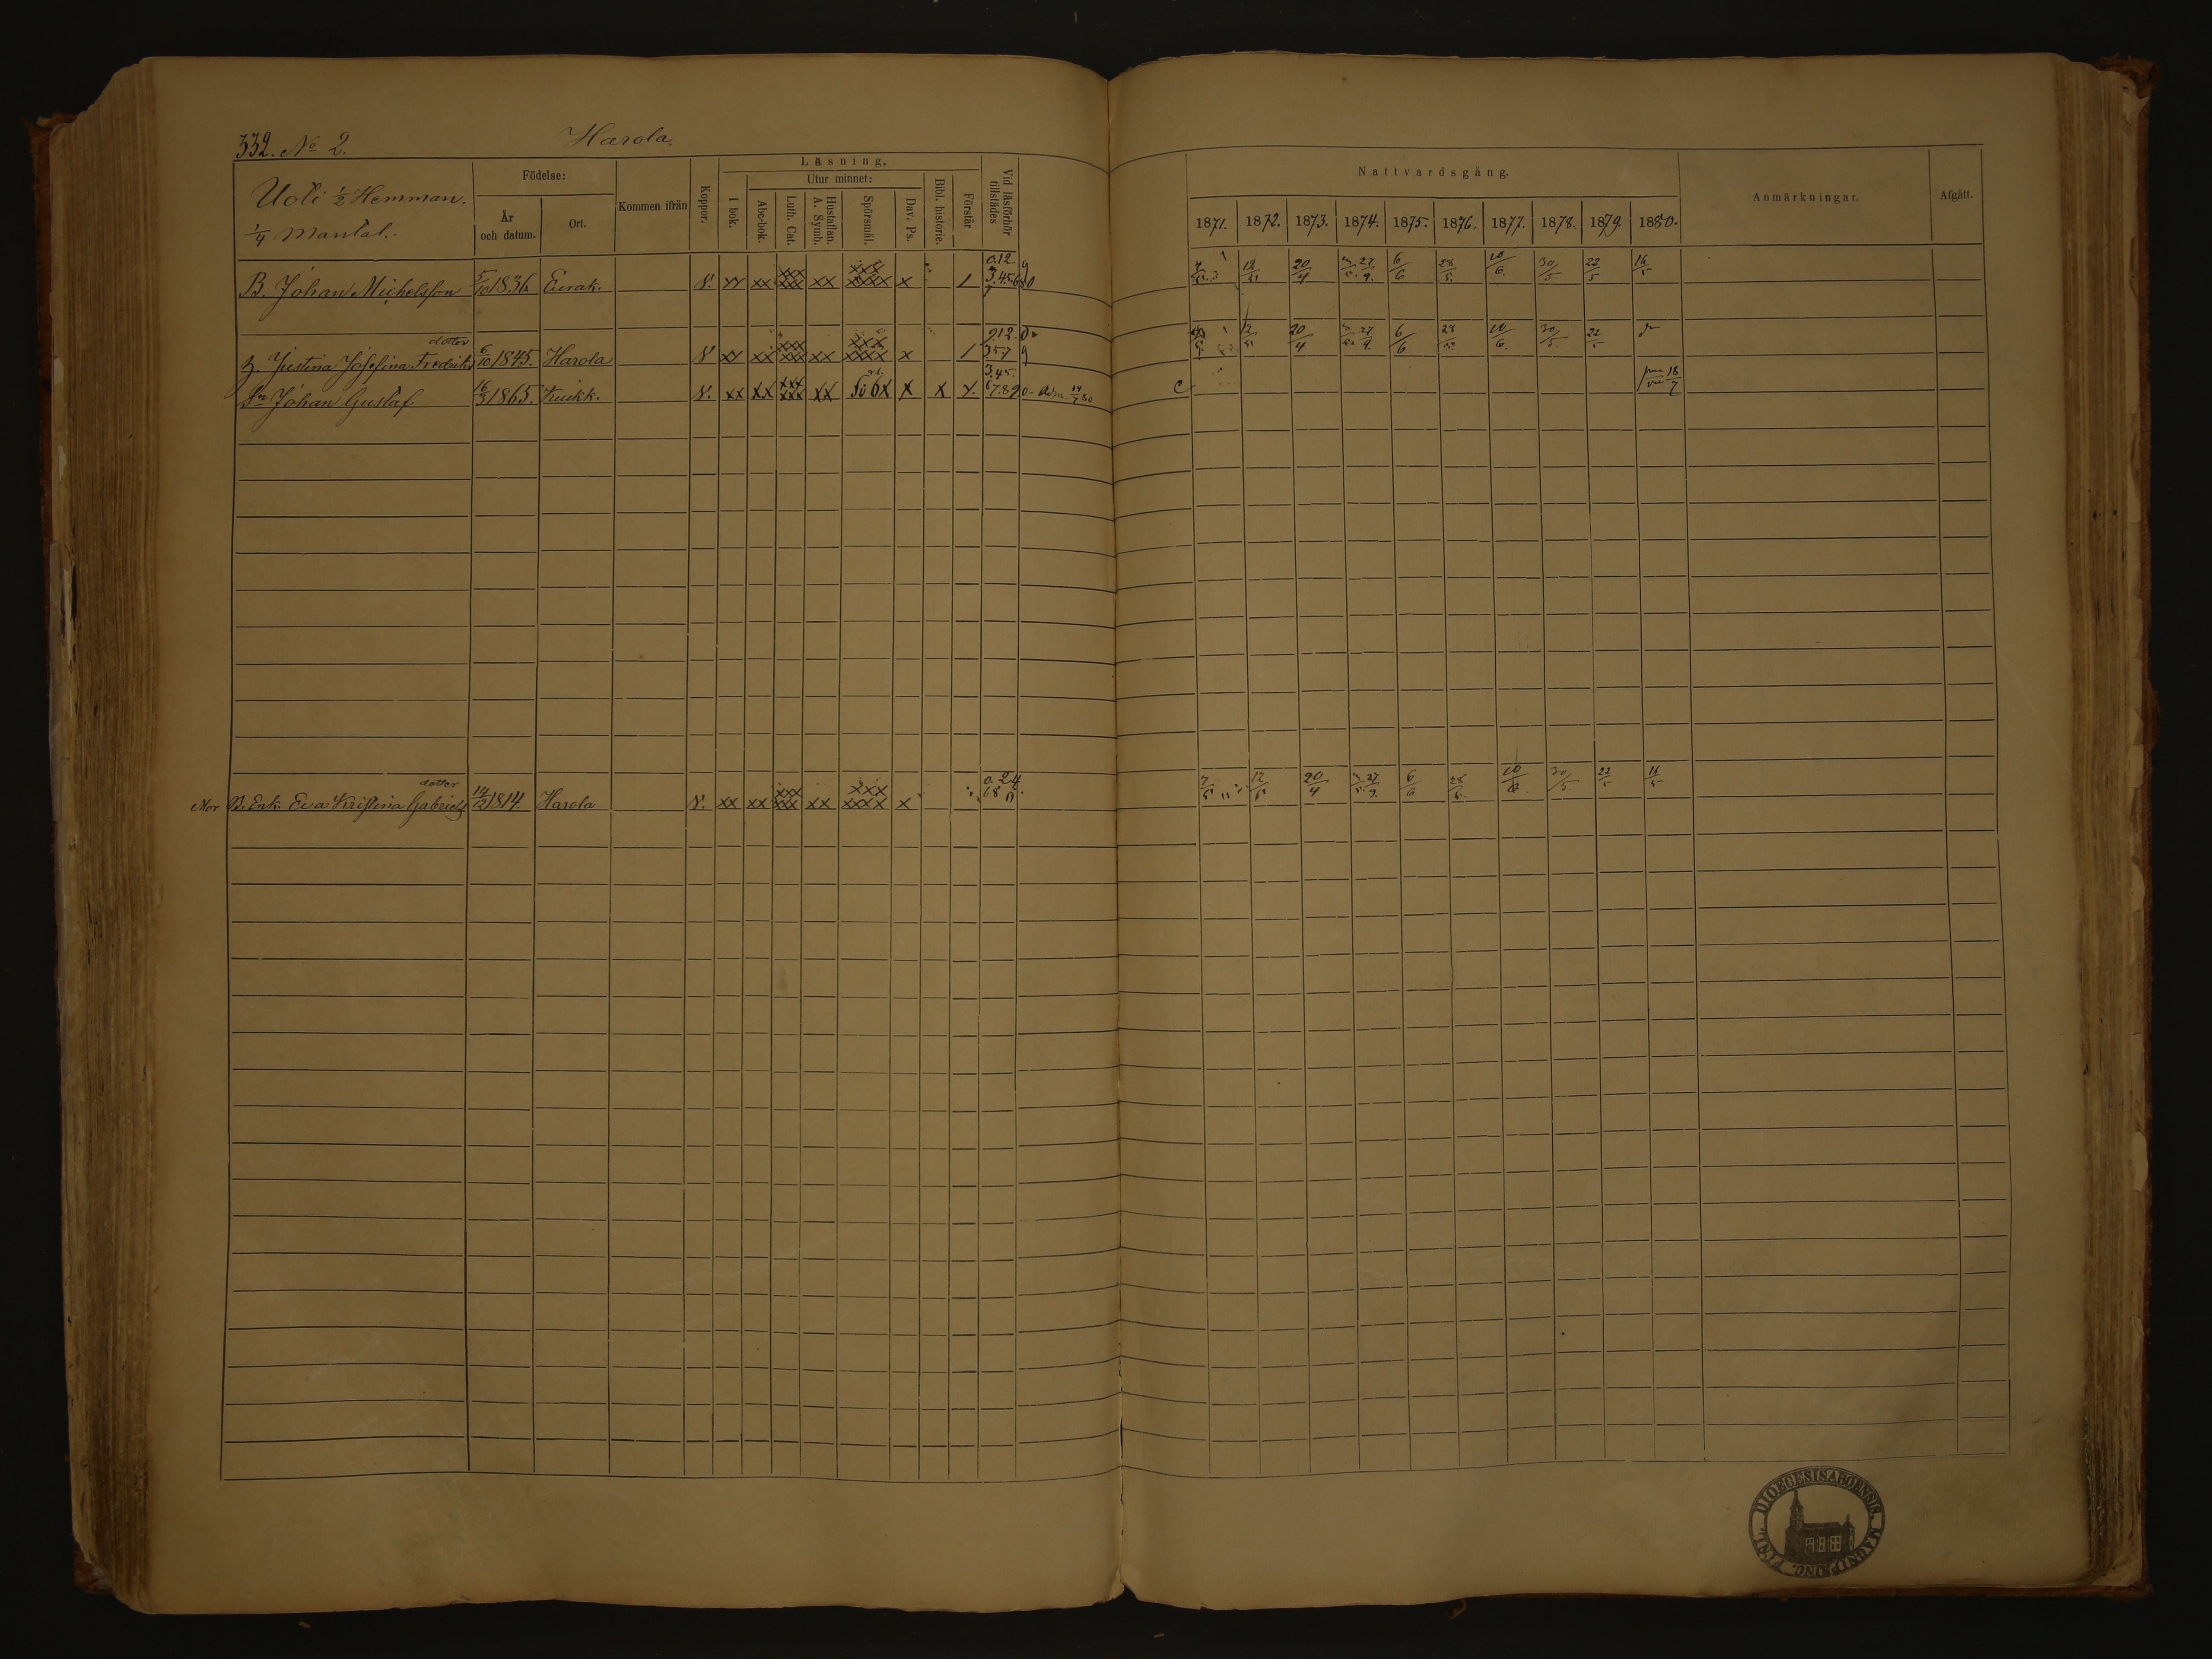 332. No 2. Harola.
Uoti 1/2 Hemman.
1/4 Mantal.
Födelse:
År och datum.
Ort.
Kommen ifrån
Koppor.
Läsning.
I bok.
Utur minnet:
Abc-bok.
Luth. Cat.
Hustaflan. A. Symb.
Spörsmål.
Dav. Ps.
Bibl. historie.
Förstår
Vid läsförhör tillstädes
Nattvardsgång.
1871. 1872. 1873. 1874. 1875. 1876. 1877. 1878. 1879. 1880.
Anmärkningar.
Afgått.
B. Johan Michelsson 5/10 1836. Eurak. V. xx xx xxx xxx xx xxx xxxx x 1 12/5 20/4 27/9. 6/6 28/5. 10/6. 30/5 22/5 16/5
dotter
h. Justina Josefina Fredriks 6/10 1845. Harola V xx xx xxx xxx xx xxx xxxx x 1 357 12/5 20/4 27/9. 6/6 28/5 10/6. 30/5. 22/5
Sn Johan Gustaf 16/3 1865. Kuikk. V. xx xx xxx xxx xx x x 3.45. 6789 C 18/7
dotter
Mor B. Enk. Eva Kristina Gabriels 14/12 1814. Harola V. xx xx xxx xxx xx xxx xxxx x 7/5 12/5 20/4 27/9. 6/6 28/5. 10/6. 30/5 22/5 16/5
DIOECESIS ABOENSIS. MAGNI PRINC. FINL.